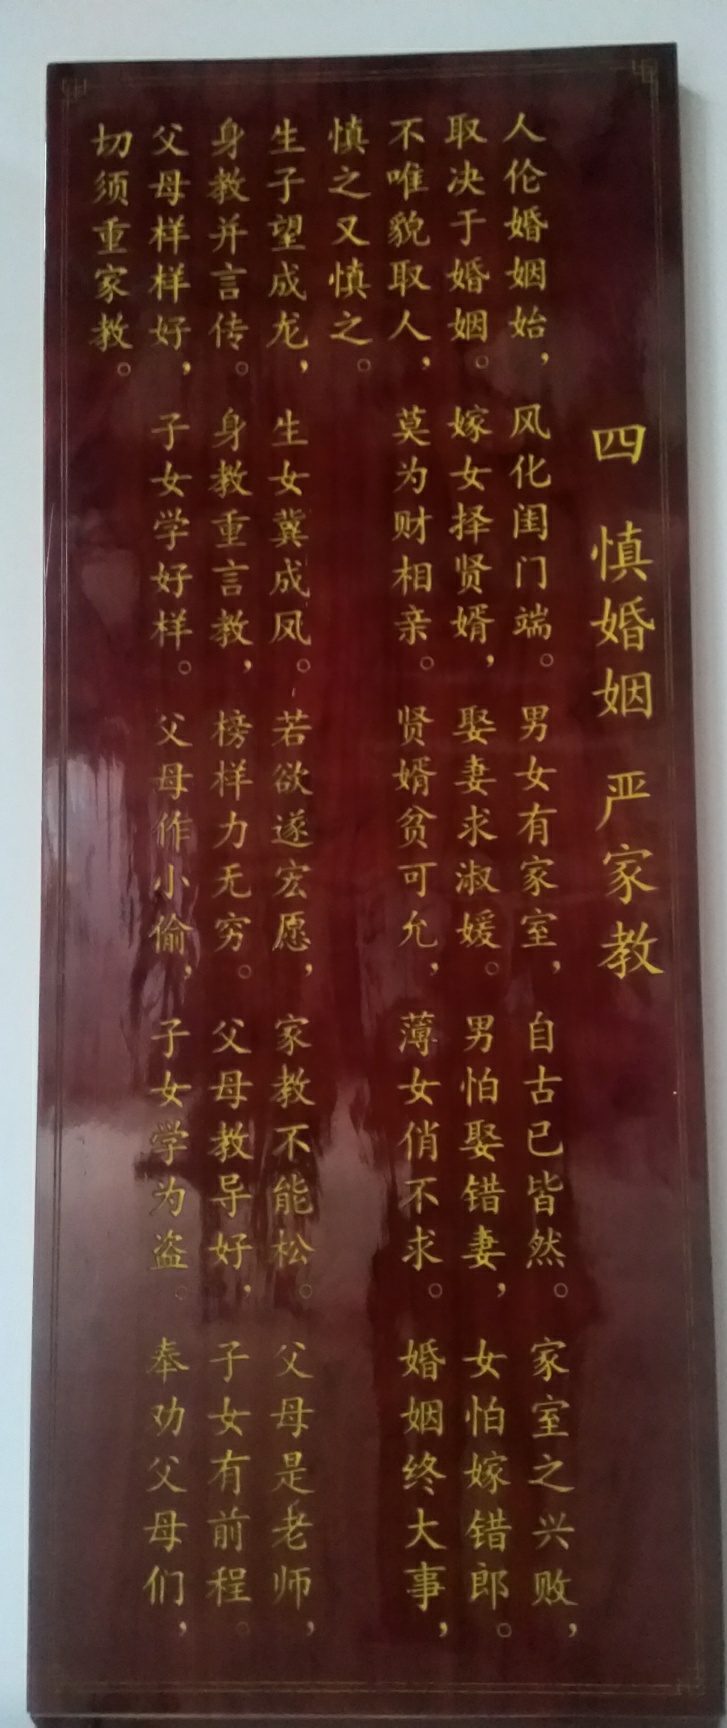 四 慎婚姻 严家教
人伦婚姻始，风化闺门端。男女有家室，自古已皆然。家室之兴败，
取决于婚姻。嫁女择贤婿，娶妻求淑媛。男怕娶错妻，女怕嫁错郎。
不唯貌取人，莫为财相亲。贤婿贫可允，薄女俏不求。婚姻终大事，
慎之又慎之。
生子望成龙，生女冀成凤。若欲遂宏愿，家教不能松。父母是老师，
身教并言传。身教重言教，榜样力无穷。父母教导好，子女有前程。
父母样样好，子女学好样。父母作小偷，子女学为盗。奉劝父母们，
切须重家教。